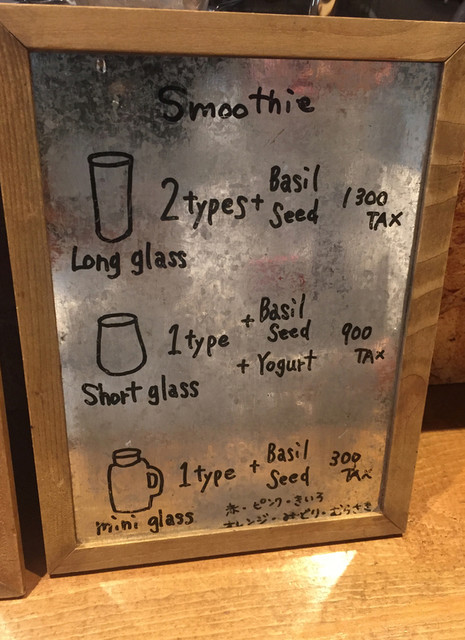 Smoothie
2 types + Basil Seed 1300 TAX
Long glass
1 type + Basil Seed + Yogurt 900 TAX
Short glass
1 type + Basil Seed 300 TAX
mini glass
赤・ピンク・きいろ
オレンジ・みどり・むらさき